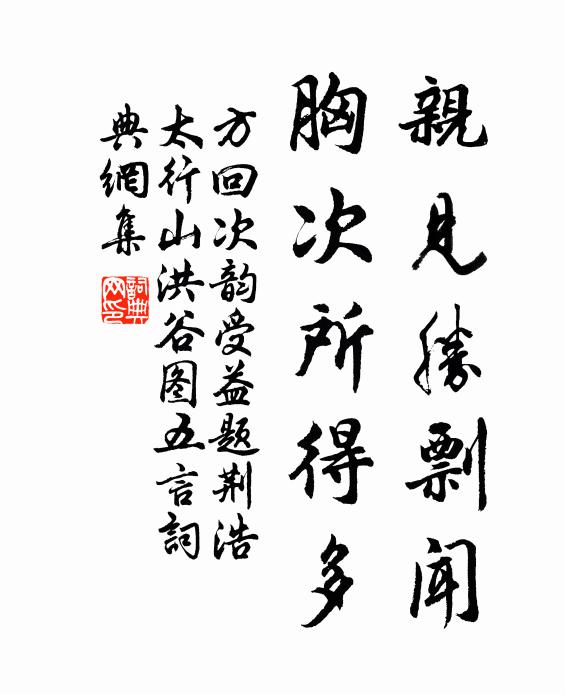 親見勝剽聞
胸次所得多
方回次韵受益题荆浩
太行山洪谷图五言詞
典網集
詞典
网印